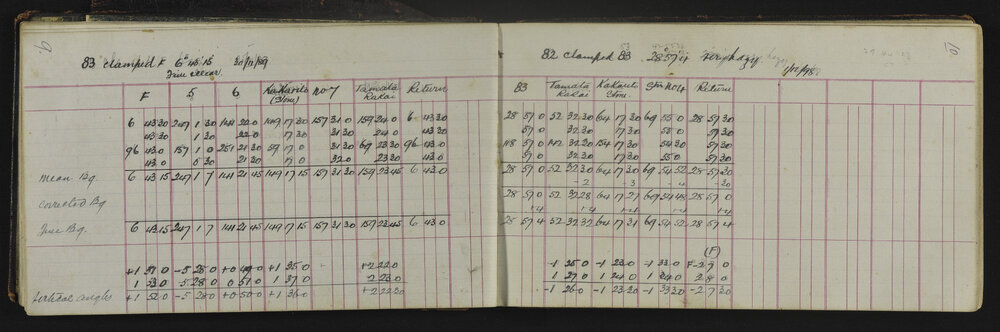 9.
83 clamped F 6° 43 15 30/11/89
Fine & clear
F 5 6 KaKariki (Stone) No 7 Tamata Rakai Return
6 43 30 247 1 30 141 22 0 149 17 30 157 31 30 159 24 0 6 43 30
42 30 1 30 22 0 17 30 31 30 24 0 43 30
96 43 0 157 1 0 21 30 59 17 0 31 30 69 23 30 96 43 0
43 0 0 30 21 30 17 0 32 0 23 30 43 0
mean Bg 6 43 15 247 1 7 141 21 45 149 17 15 157 31 30 159 23 45 6 43 0
Corrected Bg
True Bg. 6 43 15 247 1 7 141 21 45 149 17 15 157 31 30 159 23 45 6 43 0
+1 51 0 -5 28 0 +0 49 0 +1 35 0 +2 22 0
1 53 0 5 28 0 0 51 0 1 37 0 2 23 0
Vertical angles +1 52 0 -5 28 0 +0 50 0 +1 36 0 +2 22 30
10
82 clamped 83 28 57 4 very hazy 1/12/98
83 Tamata Rakai Kakariki Stone Stn No 4 Return
28 57 0 52 32 30 64 17 30 69 55 0 28 57 30
57 0 32 30 17 30 55 0 57 30
118 57 0 142 32 30 154 17 30 54 30 57 30
57 0 32 30 17 30 55 0 57 30
28 57 0 52 32 30 64 17 30 69 54 52 28 57 30
-2 -3 -4 -30
28 57 0 52 32 28 64 17 27 69 54 48 28 57 0
+4 +4 +4 +4
28 57 4 52 32 32 64 17 31 69 54 52 28 57 4
(F)
-1 25 0 -1 23 0 -1 33 0 F -2 7 0
1 27 0 1 24 0 1 34 0 2 8 0
-1 26 0 -1 23 30 -1 33 30 -2 7 30